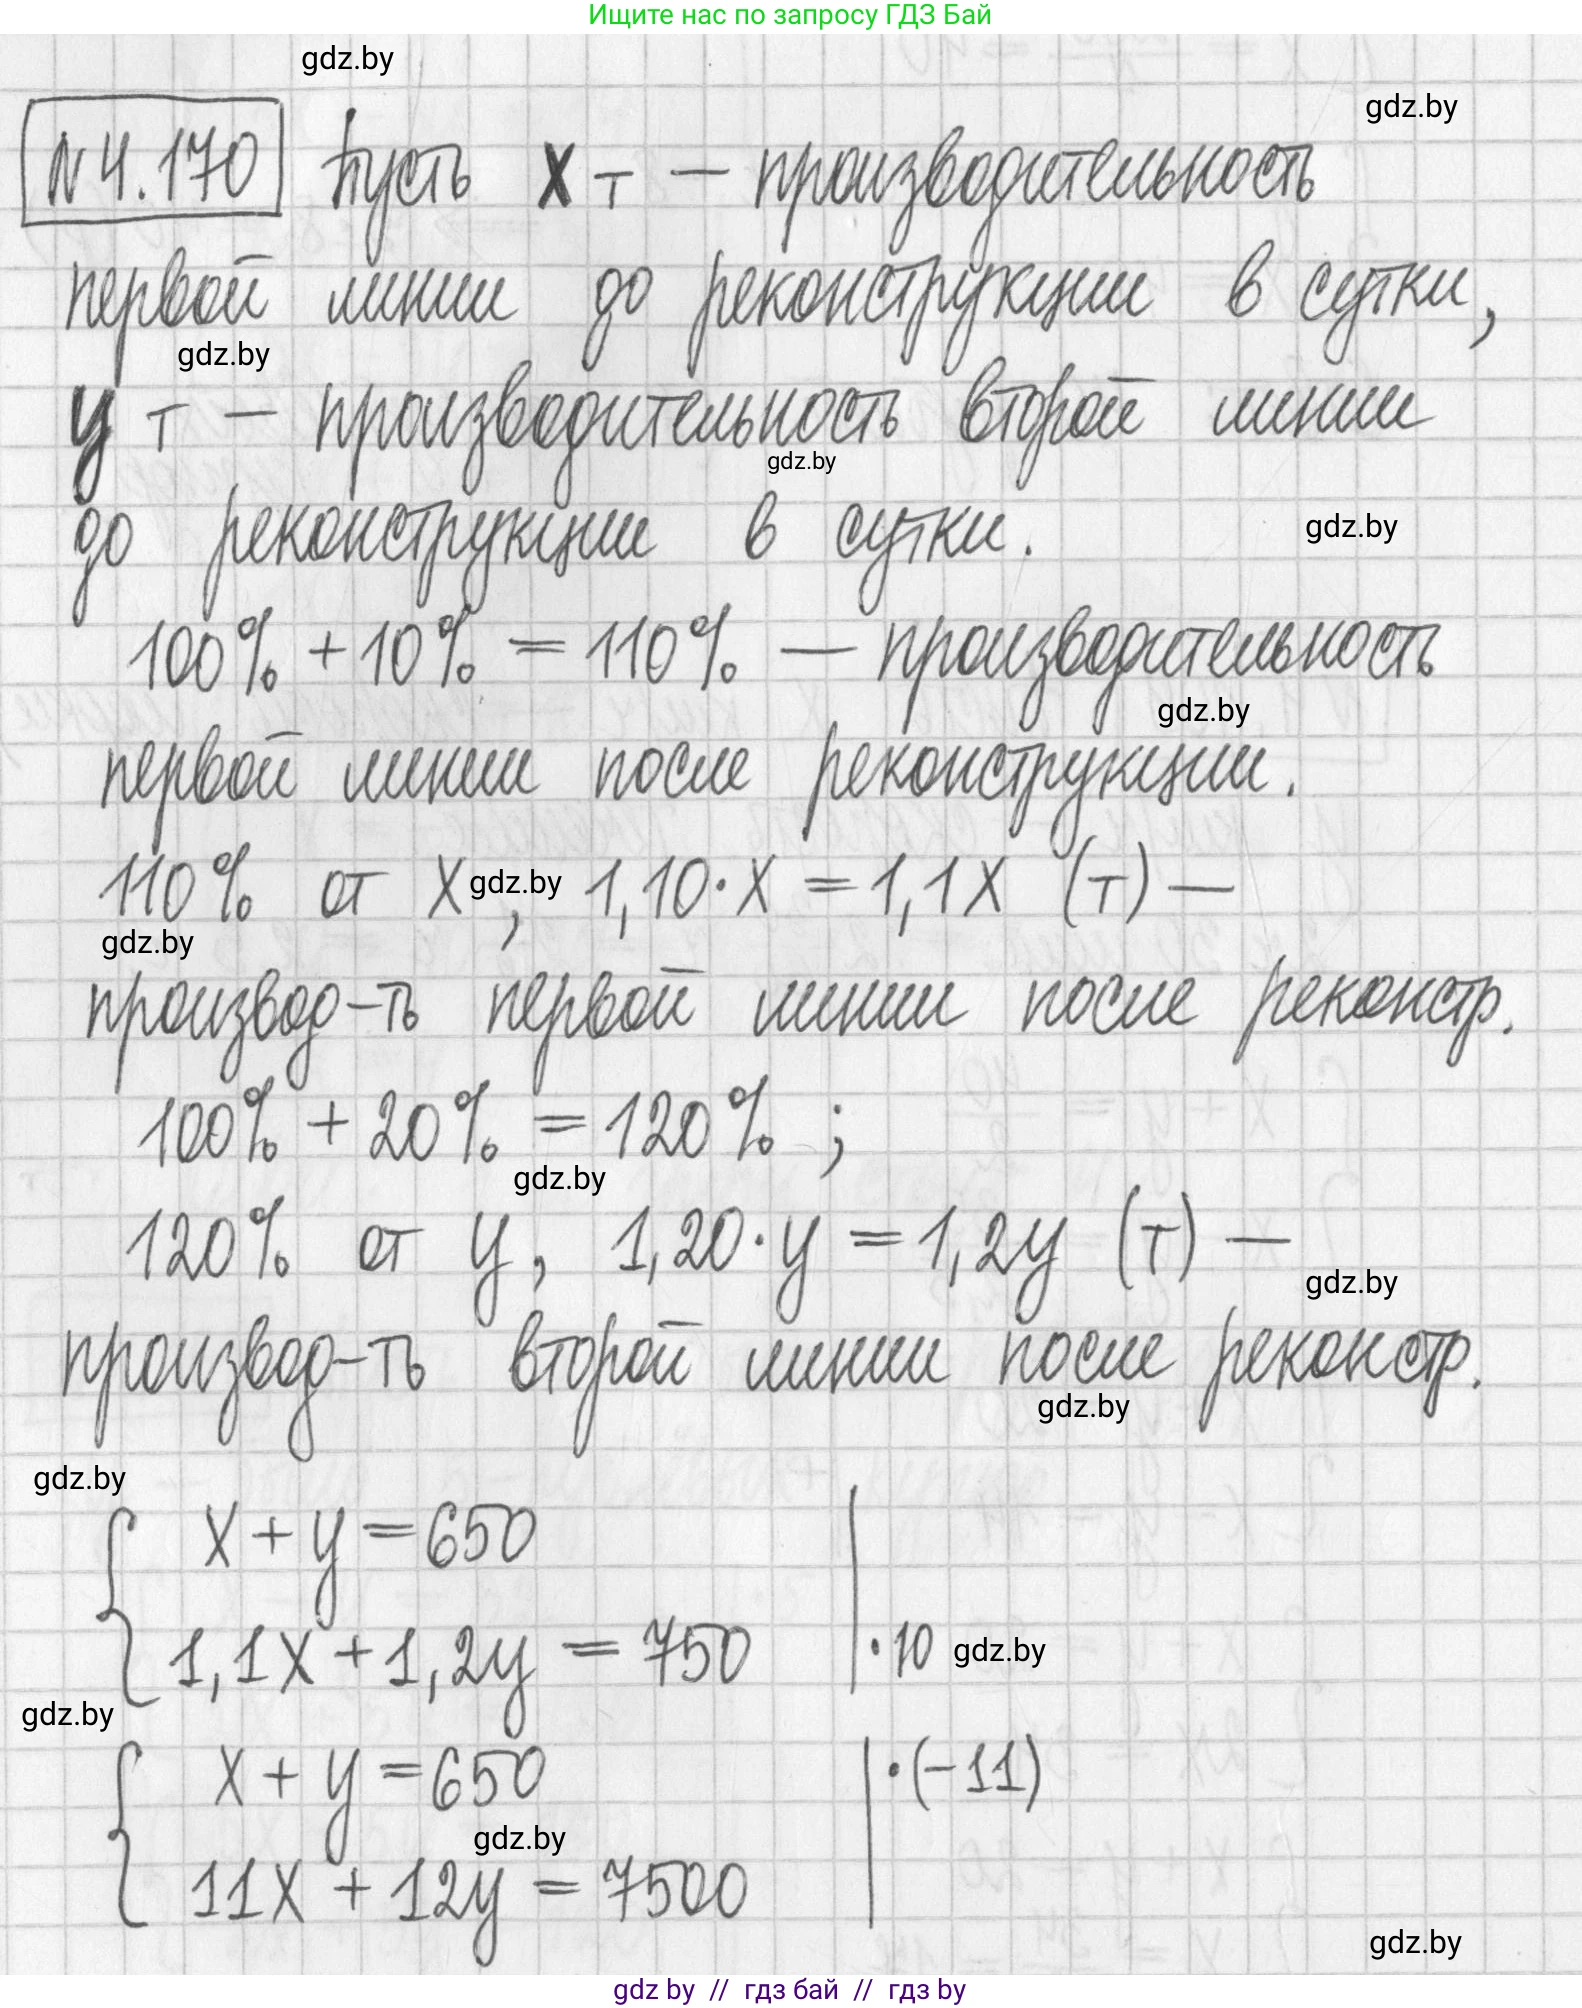 Ищите нас по запросу ГДЗ Бай
gdz.by
gdz.by
N 4.170 Пусть x т — производительность
первой линии до реконструкции в сутки,
gdz.by
y т — производительность второй линии
gdz.by
до реконструкции в сутки.
gdz.by
100% + 10% = 110% — производительность
gdz.by
первой линии после реконструкции.
110% от x, 1,10·x = 1,1x (т) —
gdz.by
gdz.by
производ-ть первой линии после реконстр.
100% + 20% = 120% ;
gdz.by
120% от y, 1,20·y = 1,2y (т) —
gdz.by
производ-ть второй линии после реконстр.
gdz.by
gdz.by
{ x + y = 650 |
1,1x + 1,2y = 750 | ·10
gdz.by
gdz.by
{ x + y = 650 | ·(-11)
gdz.by
11x + 12y = 7500
gdz.by
gdz by // гдз бай // гдз by